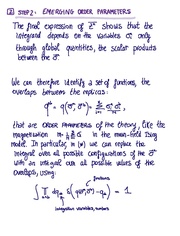 2 STEP 2: EMERGING ORDER PARAMETERS
The final expression of Zⁿ shows that the
integrand depends on the variables σᵃ only
through global quantities, the scalar products
between the σᵃ
We can therefore identify a set of functions, the
overlaps between the replicas:
that are ORDER PARAMETERS of the theory, like the
magnetisation in the mean-field Ising
model. In particular, we can replace the
integral over all possible configurations of the σᵃ
with an integral over all possible values of the
overlaps, using:
functions
= 1
integration variables, numbers